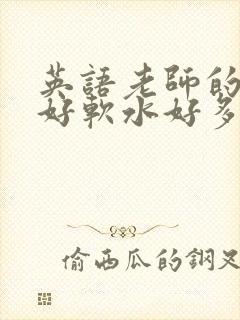 英語老師的
好軟水好多
偷西瓜的鋼叉